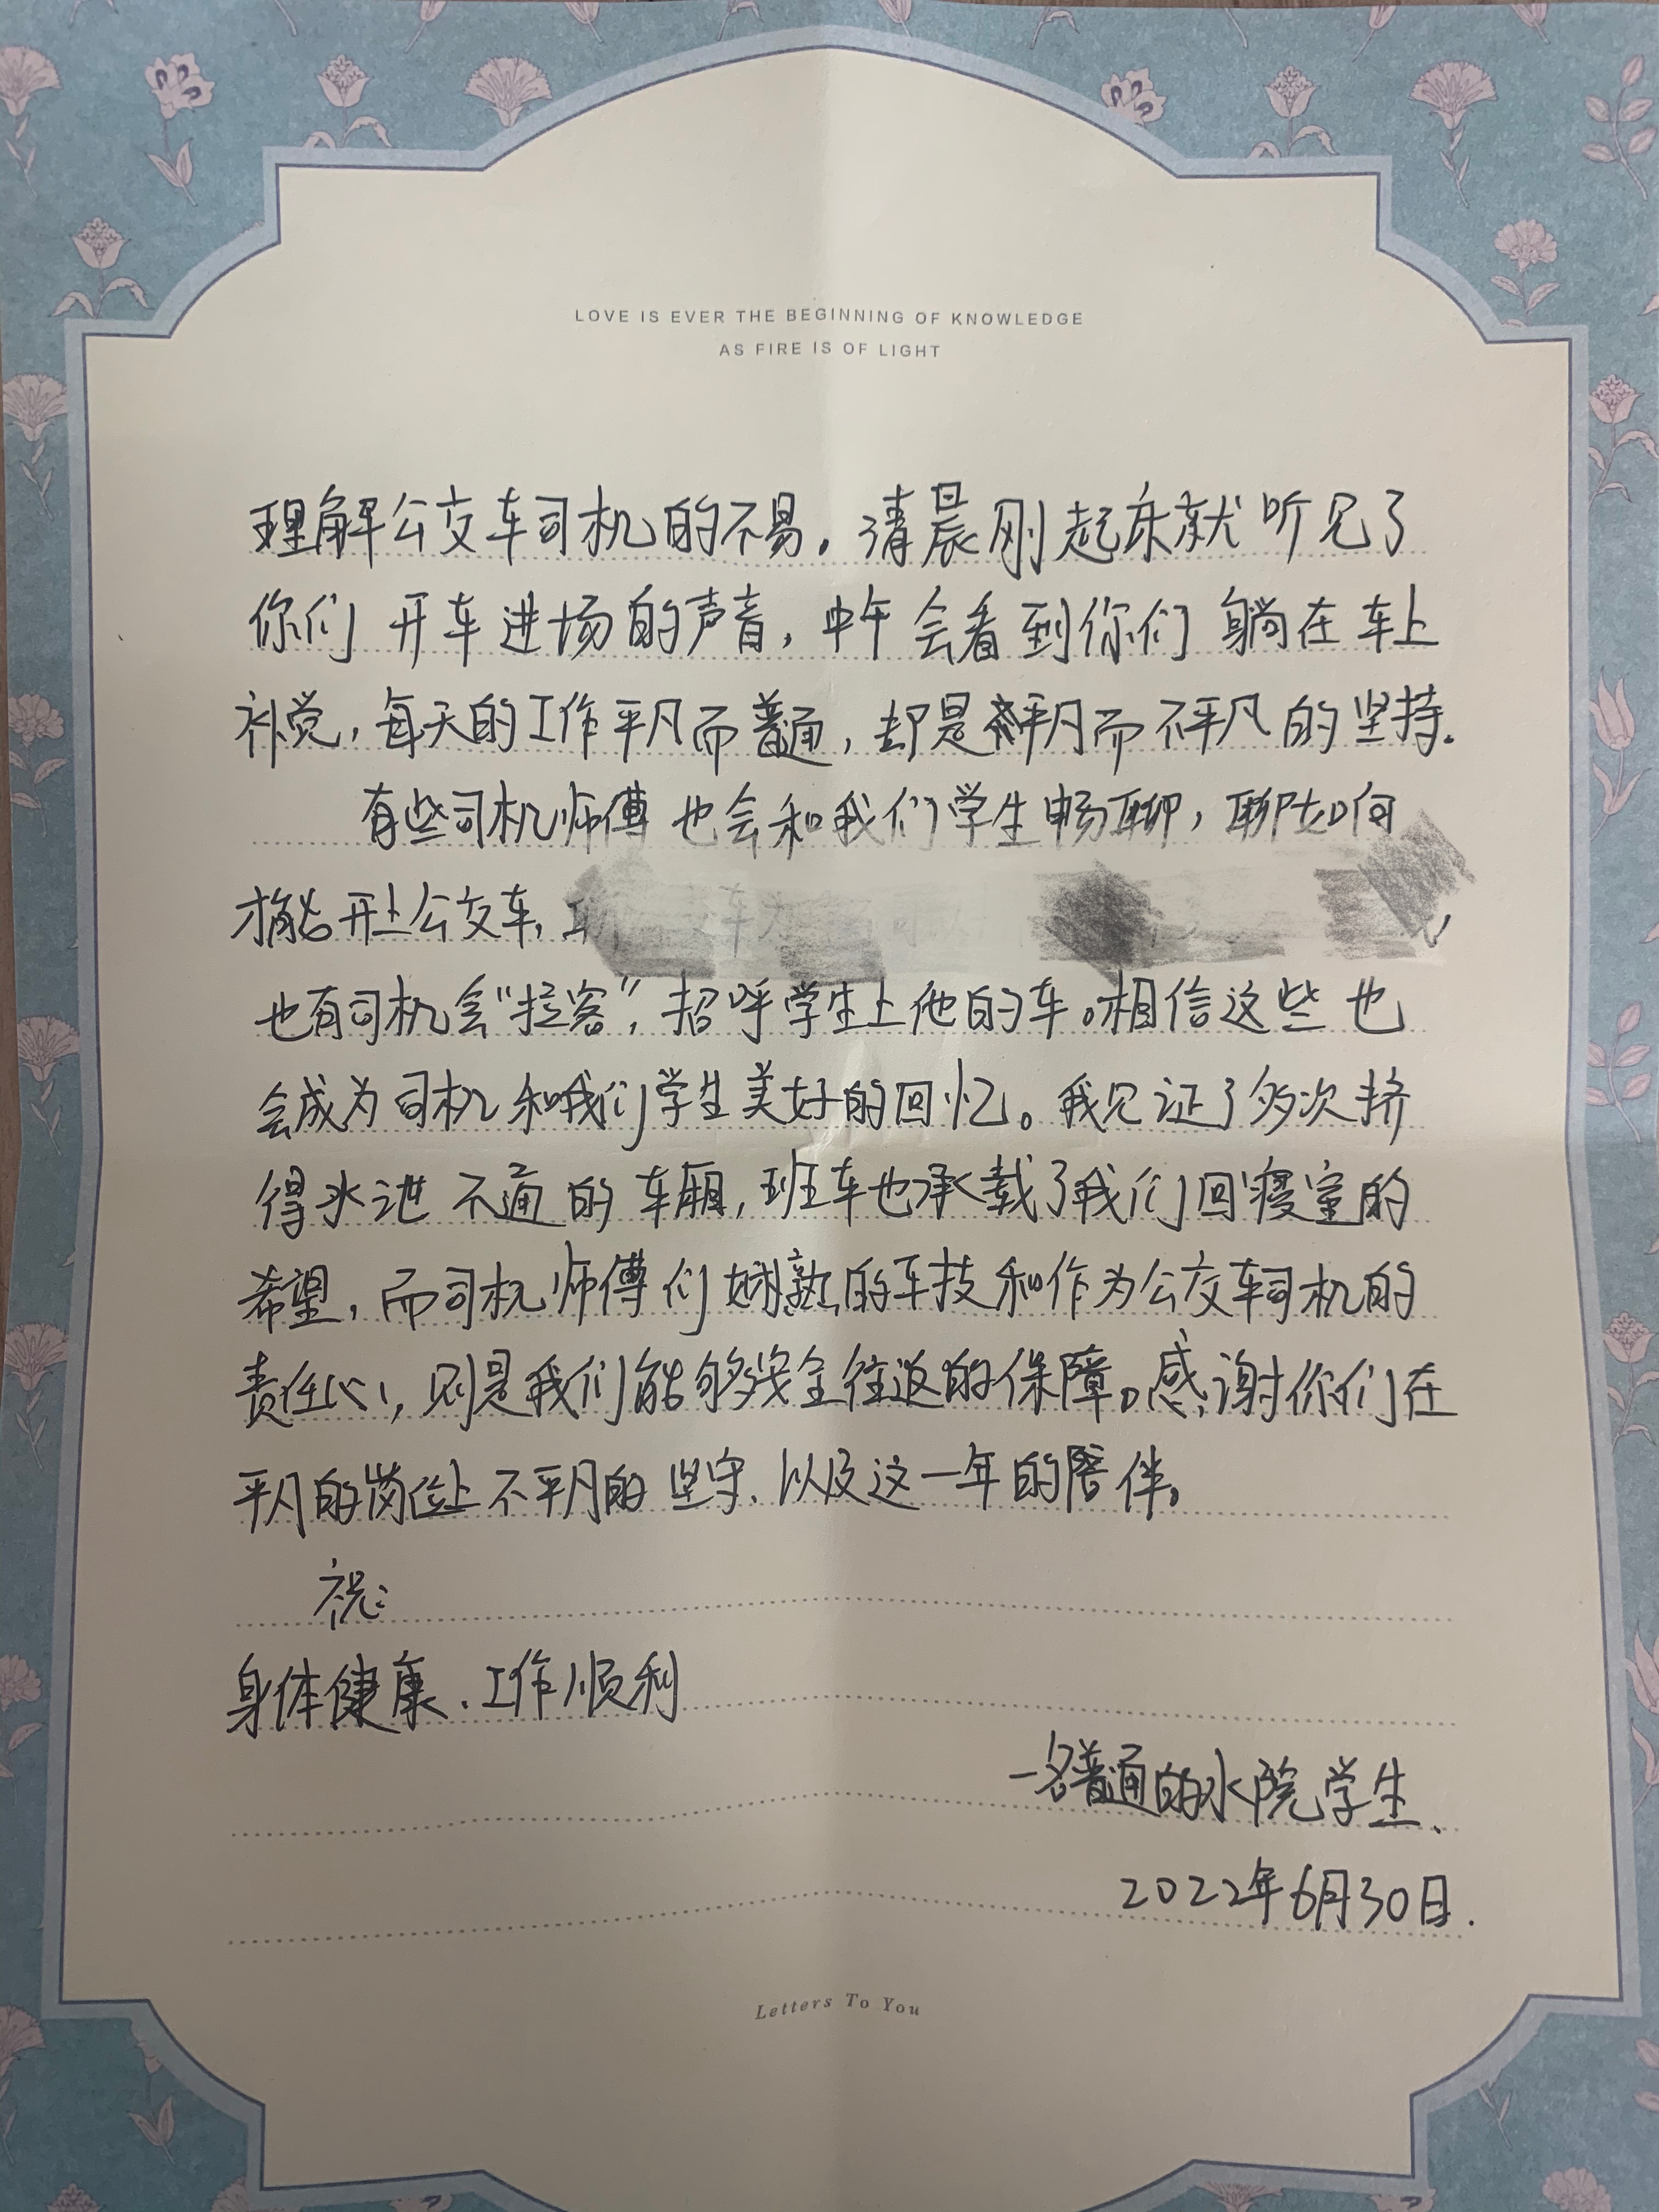 LOVE IS EVER THE BEGINNING OF KNOWLEDGE
AS FIRE IS OF LIGHT
理解公交车司机的不易。清晨刚起床就听见了
你们开车进场的声音，中午会看到你们躺在车上
补觉，每天的工作平凡而普通，却是平凡而不平凡的坚持.
有些司机师傅也会和我们学生畅聊，聊如何
才能开上公交车，
也有司机会“拉客”，招呼学生上他的车。相信这些也
会成为司机和我们学生美好的回忆。我见证了多次挤
得水泄不通的车厢，班车也承载了我们回寝室的
希望，而司机师傅们娴熟的车技和作为公交车司机的
责任心，则是我们能够安全往返的保障。感谢你们在
平凡的岗位上不平凡的坚守、以及这一年的陪伴。
祝：
身体健康、工作顺利
一名普通的水院学生、
2022年6月30日.
Letters To You